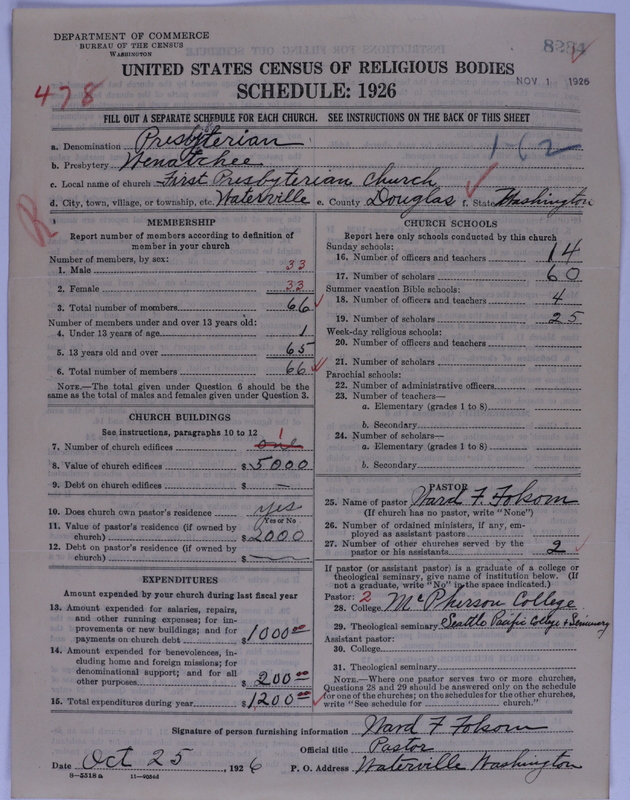 DEPARTMENT OF COMMERCE
BUREAU OF THE CENSUS
WASHINGTON
8234
UNITED STATES CENSUS OF RELIGIOUS BODIES
NOV 1 1926
478
SCHEDULE: 1926
FILL OUT A SEPARATE SCHEDULE FOR EACH CHURCH. SEE INSTRUCTIONS ON THE BACK OF THIS SHEET
a. Denomination Presbyterian
b. Presbytery Wenatchee
1-62
c. Local name of church First Presbyterian Church
d. City, town, village, or township, etc. Waterville e. County Douglas f. State Washington
R
MEMBERSHIP
Report number of members according to definition of
member in your church
Number of members, by sex:
1. Male 33
2. Female 33
3. Total number of members 66
Number of members under and over 13 years old:
4. Under 13 years of age 1
5. 13 years old and over 65
6. Total number of members 66
NOTE.—The total given under Question 6 should be the
same as the total of males and females given under Question 3.
CHURCH BUILDINGS
See instructions, paragraphs 10 to 12
7. Number of church edifices one 1
8. Value of church edifices $5000
9. Debt on church edifices $ —
10. Does church own pastor's residence yes
Yes or No
11. Value of pastor's residence (if owned by
church) $2000
12. Debt on pastor's residence (if owned by
church) $ —
EXPENDITURES
Amount expended by your church during last fiscal year
13. Amount expended for salaries, repairs,
and other running expenses; for im-
provements or new buildings; and for
payments on church debt $1000 00
14. Amount expended for benevolences, in-
cluding home and foreign missions; for
denominational support; and for all
other purposes $200 00
15. Total expenditures during year $1200 00
CHURCH SCHOOLS
Report here only schools conducted by this church
Sunday schools:
16. Number of officers and teachers 14
17. Number of scholars 60
Summer vacation Bible schools:
18. Number of officers and teachers 4
19. Number of scholars 25
Week-day religious schools:
20. Number of officers and teachers
21. Number of scholars
Parochial schools:
22. Number of administrative officers
23. Number of teachers—
a. Elementary (grades 1 to 8)
b. Secondary
24. Number of scholars—
a. Elementary (grades 1 to 8)
b. Secondary
PASTOR
25. Name of pastor Ward F. Folsom
(If church has no pastor, write "None")
26. Number of ordained ministers, if any, em-
ployed as assistant pastors
27. Number of other churches served by the
pastor or his assistants 2
If pastor (or assistant pastor) is a graduate of a college or
theological seminary, give name of institution below. (If
not a graduate, write "No" in the space indicated.)
Pastor: 2
28. College McPherson College
29. Theological seminary Seattle Pacific College & Seminary
Assistant pastor:
30. College
31. Theological seminary
NOTE.—Where one pastor serves two or more churches,
Questions 28 and 29 should be answered only on the schedule
for one of the churches; on the schedules for the other churches,
write "See schedule for church."
Signature of person furnishing information Ward F Folsom
Official title Pastor
Date Oct 25, 1926 P. O. Address Waterville Washington
8—5518a 11—9056d